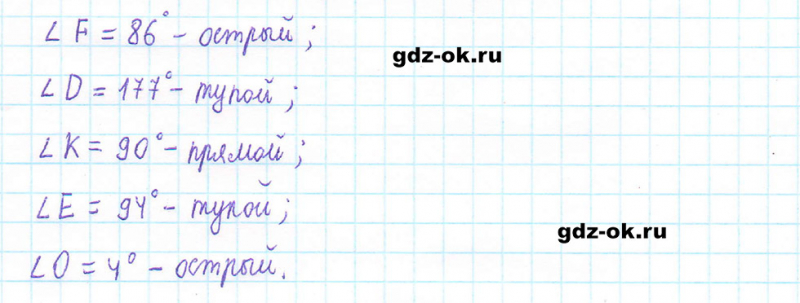 ∠ F = 86° - острый;
gdz-ok.ru
∠ D = 177° - тупой;
∠ K = 90° - прямой;
∠ E = 94° - тупой;
gdz-ok.ru
∠ O = 4° - острый.